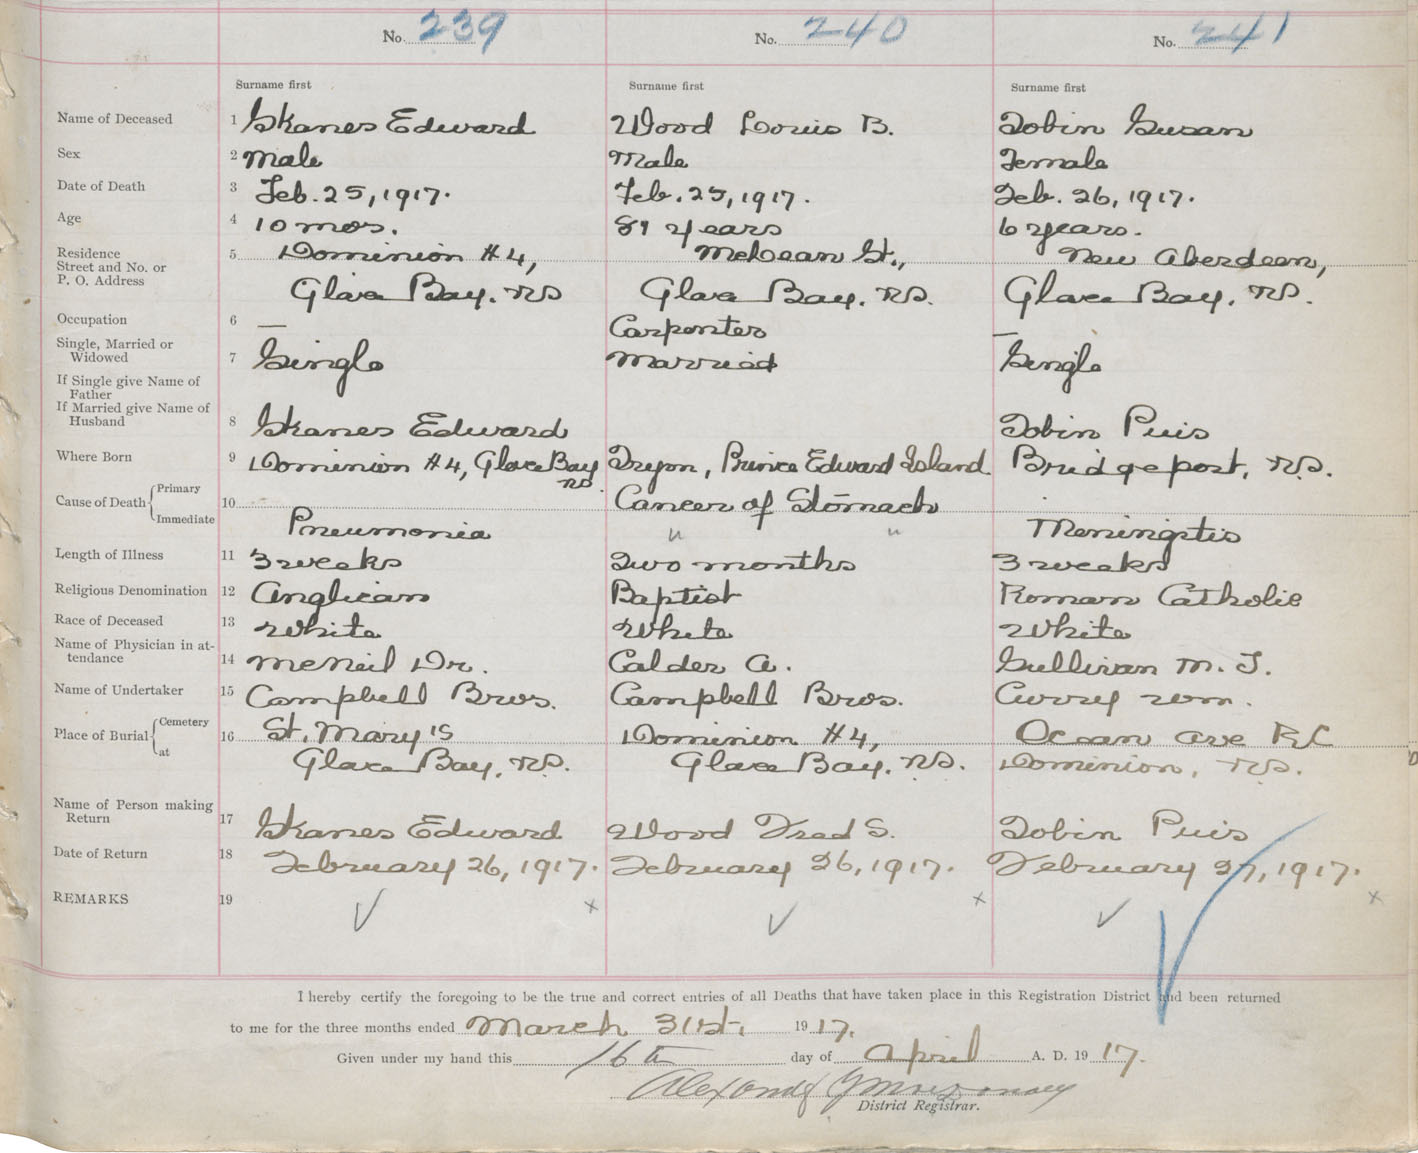 No. 239 No. 240 No. 241
Surname first Surname first Surname first
Name of Deceased 1 Skanes Edward Wood Louis B. Tobin Susan
Sex 2 Male Male Female
Date of Death 3 Feb. 25, 1917. Feb. 25, 1917. Feb. 26, 1917.
Age 4 10 mos. 81 years 6 years.
Residence 5 Dominion #4, McLean St., New Aberdeen,
Street and No. or
P. O. Address Glace Bay, N.S. Glace Bay, N.S. Glace Bay, N.S.
Occupation 6 — Carpenter —
Single, Married or
Widowed 7 Single Married Single
If Single give Name of
Father
If Married give Name of
Husband 8 Skanes Edward Tobin Puis
Where Born 9 Dominion #4, Glace Bay N.S. Tryon, Prince Edward Island Bridgeport, N.S.
Cause of Death Primary 10 Cancer of Stomach
Immediate Pneumonia " " Meningitis
Length of Illness 11 3 weeks Two months 3 weeks
Religious Denomination 12 Anglican Baptist Roman Catholic
Race of Deceased 13 White White White
Name of Physician in at-
tendance 14 McNeil Dr. Calder A. Sullivan M. J.
Name of Undertaker 15 Campbell Bros. Campbell Bros. Curry Wm.
Place of Burial Cemetery 16 St. Mary's Dominion #4, Ocean Ave R.C
at Glace Bay, N.S. Glace Bay, N.S. Dominion, N.S.
Name of Person making
Return 17 Skanes Edward Wood Fred S. Tobin Puis
Date of Return 18 February 26, 1917. February 26, 1917. February 27, 1917.
REMARKS 19
I hereby certify the foregoing to be the true and correct entries of all Deaths that have taken place in this Registration District and been returned
to me for the three months ended March 31st, 1917.
Given under my hand this 16th day of April A. D. 1917.
District Registrar.